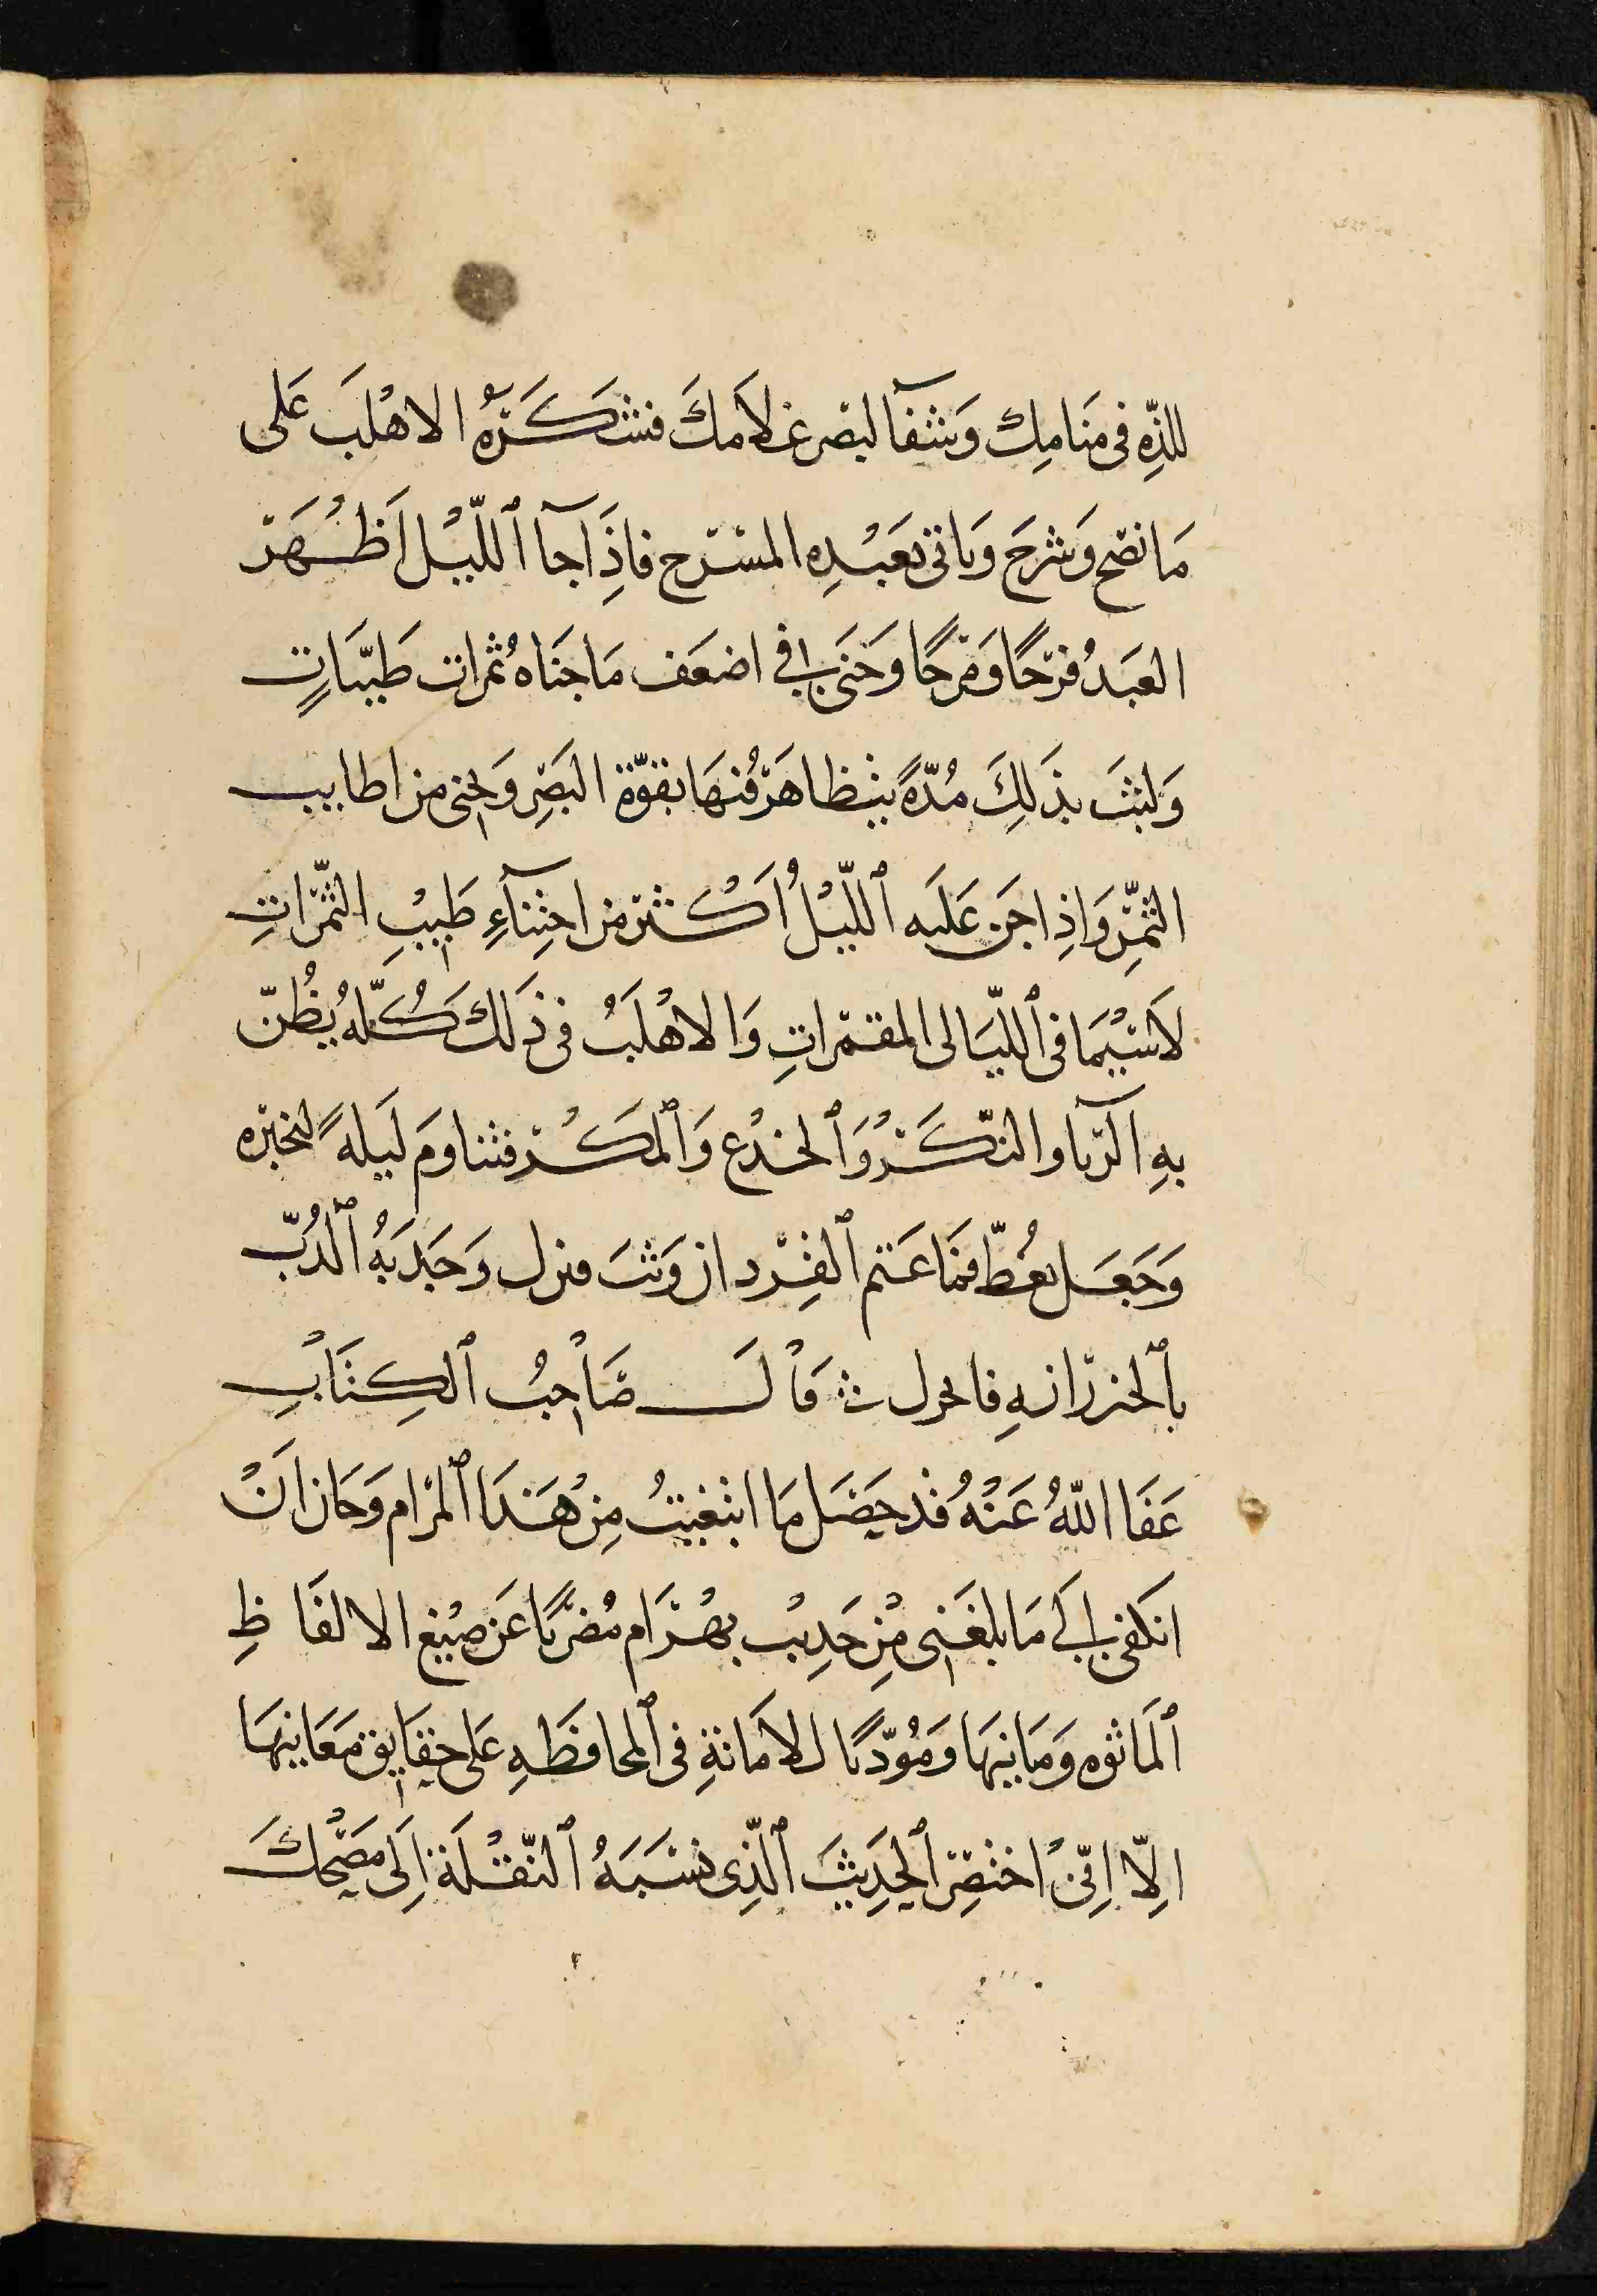 للذِّه فى مَنامِك وَشفآ لبصر غلامكَ فشكَرَهُ الاهْلَبَ عَلى
مَا نصَح وَشرحَ وَياتى بعَبْدِه المسَرح فاذِا جآ ٱللّيْل اَظهَر
العَبدُ فرَحًا وَمَرحًا وَجَنَى فى اضعَف مَا جنَاهُ ثمرات طيّبَاتٍ
وَلبثَ بذَلِكَ مُدّةً يتظاهَرُ فيهَا بقوّة البَصَرِ وَيجنى من اطايب
الثمَرِ وَاذِا جَن عَلَيه ٱللّيْلُ اَكْثر من اجتِنآءِ طَيبِ الثّمَراتِ
لاَسيْمَا فى ٱللّيَالى المقمراتِ وَالاهْلَبُ فى ذَلك كُلّه يُظنّ
بهِ الرّيآ والنكرْ وَٱلخدْع وَٱلمَكْر فتناوَم لَيلهً لنخبره
وَجَعَل يغُطّ فمَا عَتم ٱلقِرْد ان وَثبَ فنزل وَجَدَبَهُ ٱلدُبّ
بٱلخزرَانهِ فانحزل ؞ قاْلَ صَاْحِبُ ٱلكِتَاْبِ
عَفَا اللّهُ عَنْهُ قد حَصَل مَا ابتغيتُ مِنْ هَذَا ٱلمرَام وَحَان اَنْ
انكفى اِلى مَا بلغَنى مْن حَدِيْث بهْرَام مُضربًا عَن صيْغ الالفَاظِ
ٱلمَاثوره وَمَبانيهَا وَمُوَدّيًا للاَمانةِ فى ٱلمحافظَهِ عَلى حقَايق مَعَانيهَا
الِاّ اِنّىْ اختصِر ٱلحَدِيثَ ٱلّذِى نسَبَهُ ٱلنّقْلَة اِلَى مَضْحَك